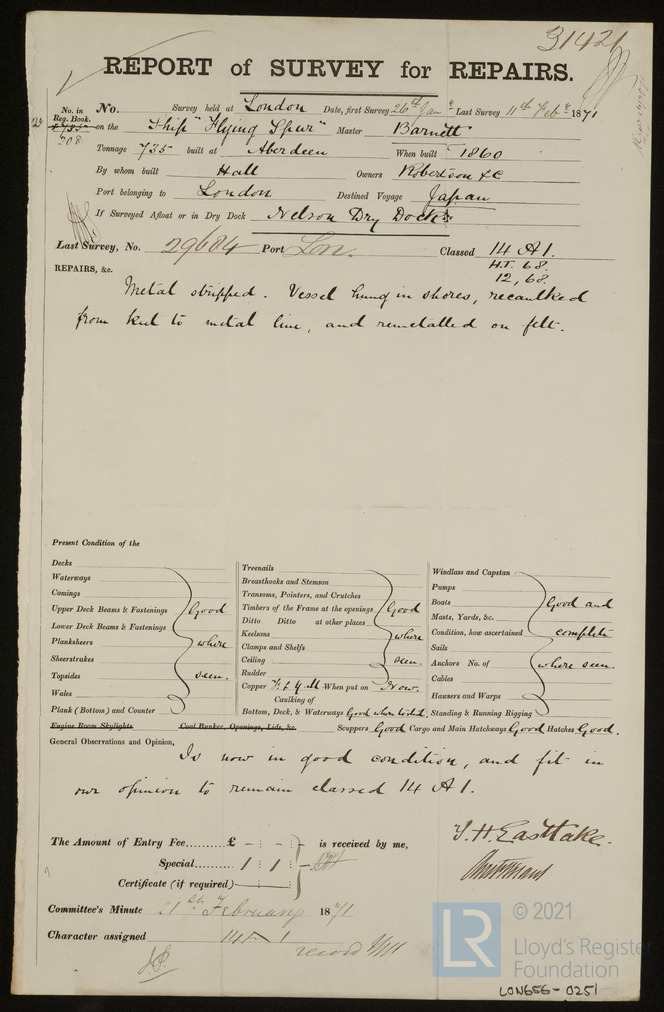 31421
REPORT of SURVEY for REPAIRS.
No. in Reg. Book.
208
No. Survey held at London Date, first Survey 26th Jany Last Survey 11th Feby 1871
on the Ship "Flying Spur" Master Barnett
Tonnage 735 built at Aberdeen When built 1860
By whom built Hall Owners Robertson & C
Port belonging to London Destined Voyage Japan
If Surveyed Afloat or in Dry Dock Nelson Dry Dock
Last Survey, No. 29684 Port Lon. Classed 14 A1.
H.T. 68.
12, 68.
REPAIRS, &c.
Metal stripped. Vessel hung in shores, recaulked
from keel to metal line, and remetalled on felt.
Present Condition of the
Decks
Waterways
Comings
Upper Deck Beams & Fastenings
Lower Deck Beams & Fastenings
Planksheers
Sheerstrakes
Topsides
Wales
Plank (Bottom) and Counter
Good
where
seen.
Treenails
Breasthooks and Stemson
Transoms, Pointers, and Crutches
Timbers of the Frame at the openings
Ditto Ditto at other places
Keelsons
Clamps and Shelfs
Ceiling
Rudder
Good
where
seen.
Copper F & Y.M When put on Now.
Caulking of
Bottom, Deck, & Waterways Good where tested
Windlass and Capstan
Pumps
Boats
Masts, Yards, &c.
Condition, how ascertained
Sails
Anchors No. of
Cables
Hawsers and Warps
Standing & Running Rigging
Good and
complete
where seen.
Engine Room Skylights Coal Bunker, Openings, Lids, &c. Scuppers Good Cargo and Main Hatchways Good Hatches Good.
General Observations and Opinion,
Is now in good condition, and fit in
our opinion to remain classed 14 A1.
The Amount of Entry Fee......... £ - : - : is received by me,
Special......... 1 : 1 : -
Certificate (if required)
T. H. Eastlake.
Committee's Minute 21st February 1871
Character assigned 14 A 1
record
© 2021
LR
Lloyd's Register
Foundation
LON656-0251